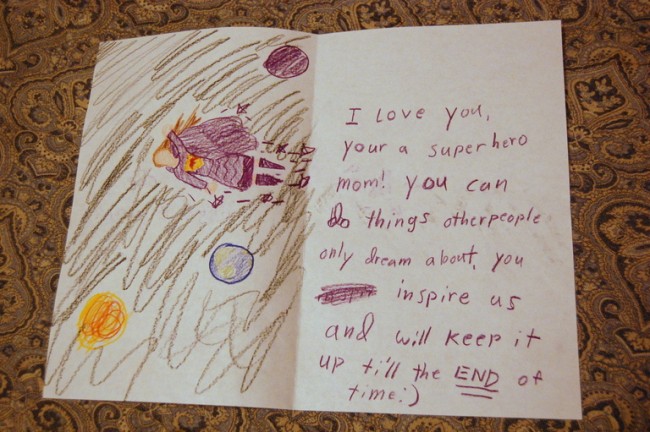 I Love you,
your a superhero
mom! you can
Do things otherpeople
only dream about, you
inspire us
and will keep it
up till the END of
time:)